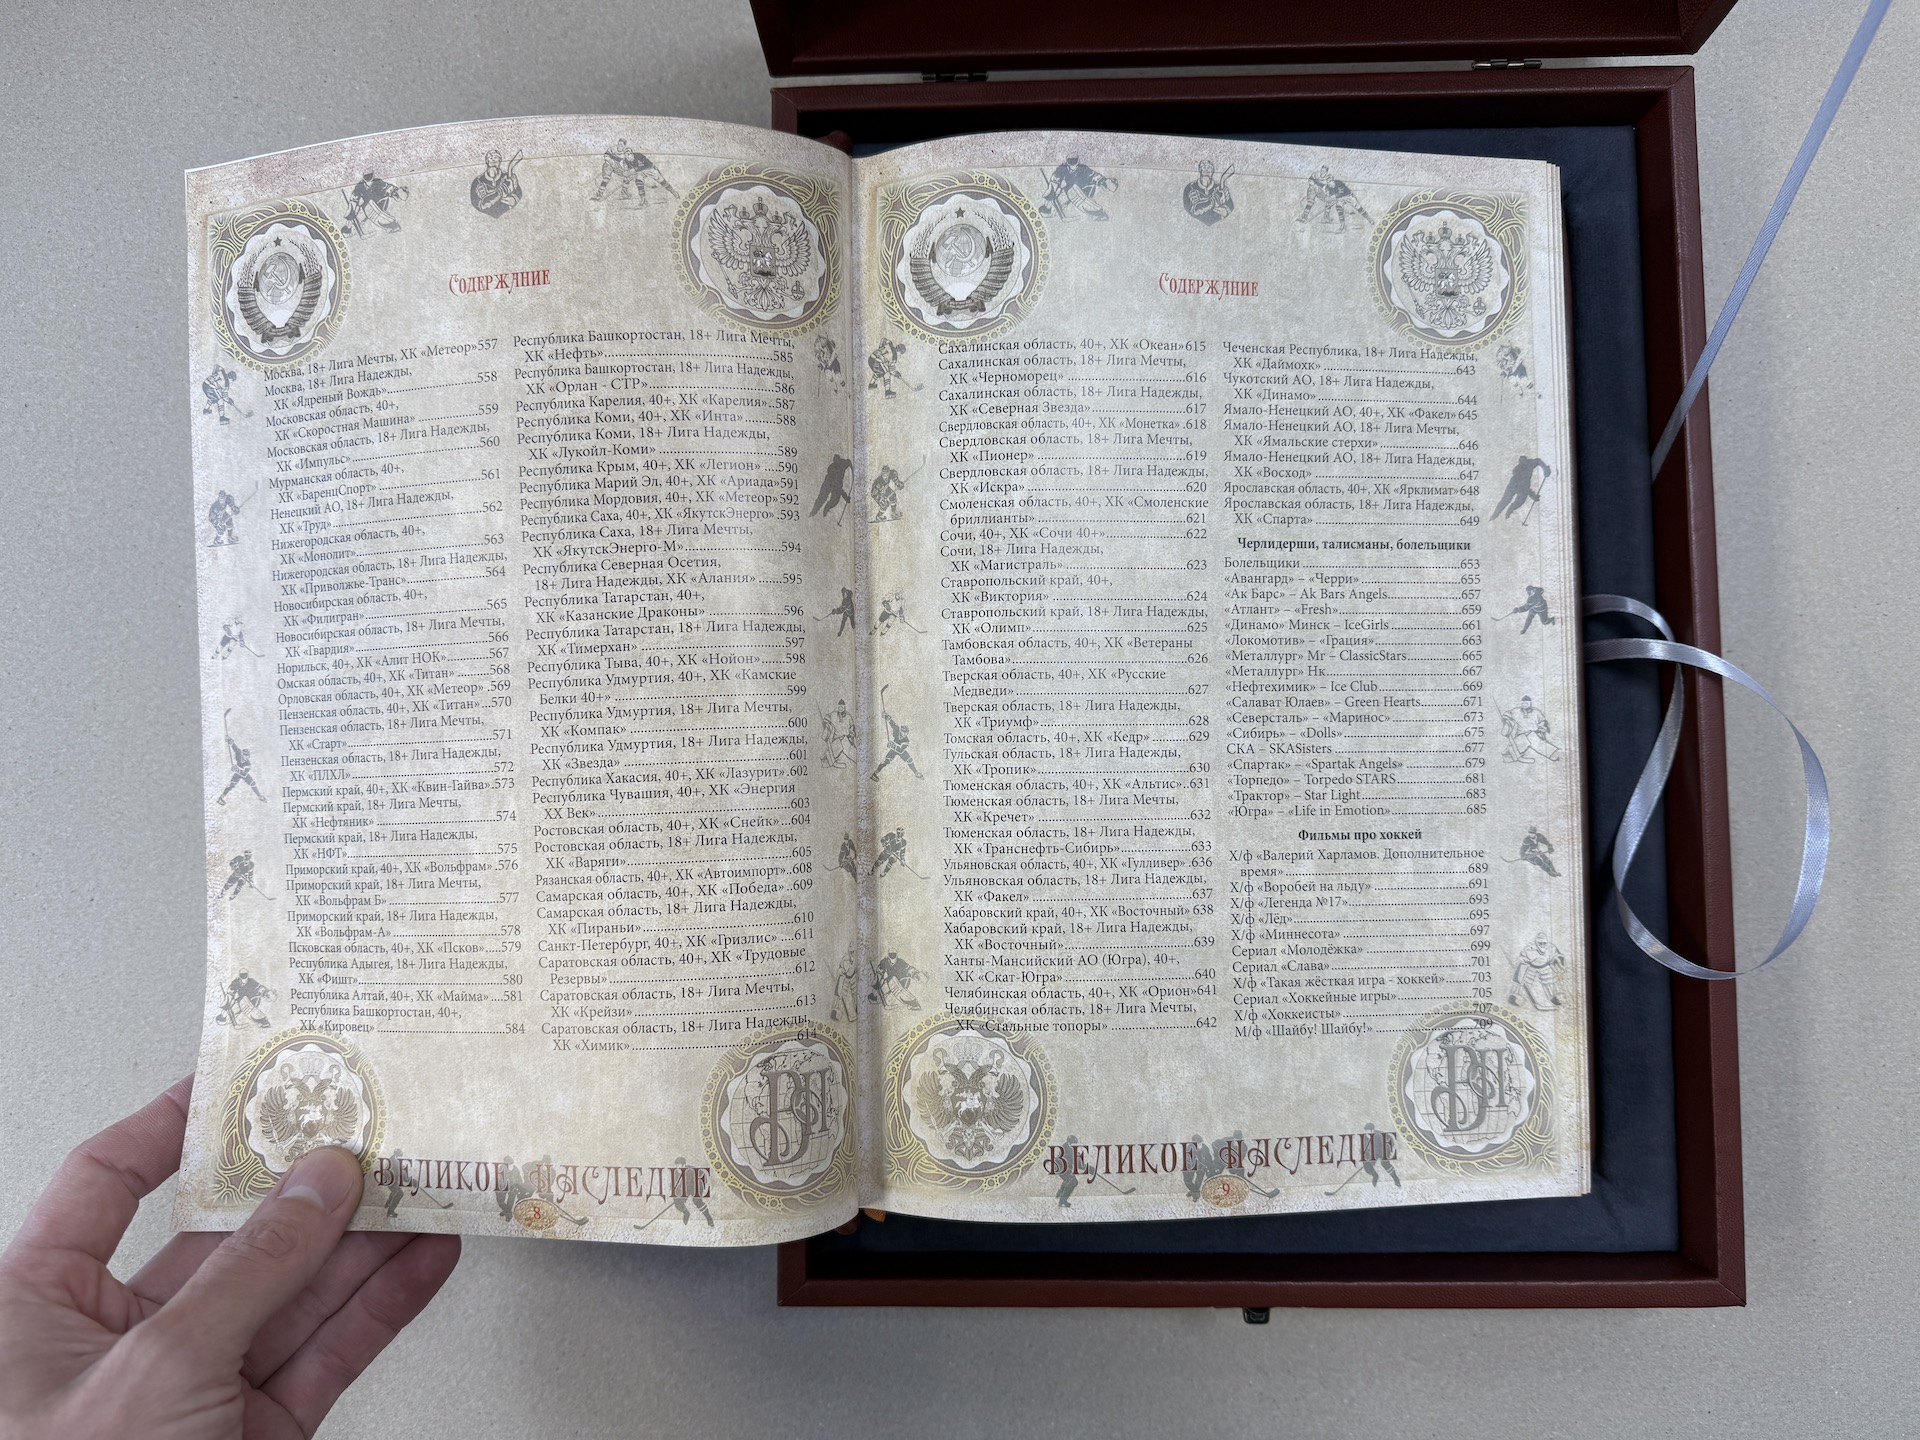 Содержание
Москва, 18+ Лига Мечты, ХК «Метеор»557
Москва, 18+ Лига Надежды,
ХК «Ядреный Вождь»..........558
Московская область, 40+,
ХК «Скоростная Машина» ..........559
Московская область, 18+ Лига Надежды,
ХК «Импульс»..........560
Мурманская область, 40+,
ХК «БаренцСпорт» ..........561
Ненецкий АО, 18+ Лига Надежды,
ХК «Труд»..........562
Нижегородская область, 40+,
ХК «Монолит»..........563
Нижегородская область, 18+ Лига Надежды,
ХК «Приволжье-Транс»..........564
Новосибирская область, 40+,
ХК «Филигран»..........565
Новосибирская область, 18+ Лига Мечты,
ХК «Гвардия»..........566
Норильск, 40+, ХК «Алит НОК»..........567
Омская область, 40+, ХК «Титан» ..........568
Орловская область, 40+, ХК «Метеор» .569
Пензенская область, 40+, ХК «Титан»...570
Пензенская область, 18+ Лига Мечты,
ХК «Старт»..........571
Пензенская область, 18+ Лига Надежды,
ХК «ПЛХЛ»..........572
Пермский край, 40+, ХК «Квин-Гайва».573
Пермский край, 18+ Лига Мечты,
ХК «Нефтяник» ..........574
Пермский край, 18+ Лига Надежды,
ХК «НФТ»..........575
Приморский край, 40+, ХК «Вольфрам» .576
Приморский край, 18+ Лига Мечты,
ХК «Вольфрам Б» ..........577
Приморский край, 18+ Лига Надежды,
ХК «Вольфрам-А» ..........578
Псковская область, 40+, ХК «Псков»....579
Республика Адыгея, 18+ Лига Надежды,
ХК «Фишт»..........580
Республика Алтай, 40+, ХК «Майма» ...581
Республика Башкортостан, 40+,
ХК «Кировец» ..........584
Республика Башкортостан, 18+ Лига Мечты,
ХК «Нефть»..........585
Республика Башкортостан, 18+ Лига Надежды,
ХК «Орлан - СТР»..........586
Республика Карелия, 40+, ХК «Карелия»..587
Республика Коми, 40+, ХК «Инта» ...588
Республика Коми, 18+ Лига Надежды,
ХК «Лукойл-Коми» ..........589
Республика Крым, 40+, ХК «Легион» ...590
Республика Марий Эл, 40+, ХК «Ариада»591
Республика Мордовия, 40+, ХК «Метеор»592
Республика Саха, 40+, ХК «ЯкутскЭнерго».593
Республика Саха, 18+ Лига Мечты,
ХК «ЯкутскЭнерго-М»..........594
Республика Северная Осетия,
18+ Лига Надежды, ХК «Алания» ......595
Республика Татарстан, 40+,
ХК «Казанские Драконы» ..........596
Республика Татарстан, 18+ Лига Надежды,
ХК «Тимерхан» ..........597
Республика Тыва, 40+, ХК «Нойон»......598
Республика Удмуртия, 40+, ХК «Камские
Белки 40+» ..........599
Республика Удмуртия, 18+ Лига Мечты,
ХК «Компак» ..........600
Республика Удмуртия, 18+ Лига Надежды,
ХК «Звезда» ..........601
Республика Хакасия, 40+, ХК «Лазурит».602
Республика Чувашия, 40+, ХК «Энергия
XX Век»..........603
Ростовская область, 40+, ХК «Снейк» ...604
Ростовская область, 18+ Лига Надежды,
ХК «Варяги» ..........605
Рязанская область, 40+, ХК «Автоимпорт»..608
Самарская область, 40+, ХК «Победа» ..609
Самарская область, 18+ Лига Надежды,
ХК «Пираньи» ..........610
Санкт-Петербург, 40+, ХК «Гризлис» ....611
Саратовская область, 40+, ХК «Трудовые
Резервы» ..........612
Саратовская область, 18+ Лига Мечты,
ХК «Крейзи» ..........613
Саратовская область, 18+ Лига Надежды,
ХК «Химик» ..........614
ВП
ВЕЛИКОЕ НАСЛЕДИЕ
8
Содержание
Сахалинская область, 40+, ХК «Океан»615
Сахалинская область, 18+ Лига Мечты,
ХК «Черноморец» ..........616
Сахалинская область, 18+ Лига Надежды,
ХК «Северная Звезда»..........617
Свердловская область, 40+, ХК «Монетка» .618
Свердловская область, 18+ Лига Мечты,
ХК «Пионер» ..........619
Свердловская область, 18+ Лига Надежды,
ХК «Искра» ..........620
Смоленская область, 40+, ХК «Смоленские
бриллианты» ..........621
Сочи, 40+, ХК «Сочи 40+»..........622
Сочи, 18+ Лига Надежды,
ХК «Магистраль» ..........623
Ставропольский край, 40+,
ХК «Виктория» ..........624
Ставропольский край, 18+ Лига Надежды,
ХК «Олимп»..........625
Тамбовская область, 40+, ХК «Ветераны
Тамбова»..........626
Тверская область, 40+, ХК «Русские
Медведи» ..........627
Тверская область, 18+ Лига Надежды,
ХК «Триумф»..........628
Томская область, 40+, ХК «Кедр» ..........629
Тульская область, 18+ Лига Надежды,
ХК «Тропик»..........630
Тюменская область, 40+, ХК «Альтис»..631
Тюменская область, 18+ Лига Мечты,
ХК «Кречет» ..........632
Тюменская область, 18+ Лига Надежды,
ХК «Транснефть-Сибирь» ..........633
Ульяновская область, 40+, ХК «Гулливер» .636
Ульяновская область, 18+ Лига Надежды,
ХК «Факел» ..........637
Хабаровский край, 40+, ХК «Восточный» 638
Хабаровский край, 18+ Лига Надежды,
ХК «Восточный» ..........639
Ханты-Мансийский АО (Югра), 40+,
ХК «Скат-Югра» ..........640
Челябинская область, 40+, ХК «Орион»641
Челябинская область, 18+ Лига Мечты,
ХК «Стальные топоры» ..........642
Чеченская Республика, 18+ Лига Надежды,
ХК «Даймохк» ..........643
Чукотский АО, 18+ Лига Надежды,
ХК «Динамо» ..........644
Ямало-Ненецкий АО, 40+, ХК «Факел» 645
Ямало-Ненецкий АО, 18+ Лига Мечты,
ХК «Ямальские стерхи» ..........646
Ямало-Ненецкий АО, 18+ Лига Надежды,
ХК «Восход» ..........647
Ярославская область, 40+, ХК «Ярклимат»648
Ярославская область, 18+ Лига Надежды,
ХК «Спарта» ..........649
Черлидерши, талисманы, болельщики
Болельщики ..........653
«Авангард» – «Черри»..........655
«Ак Барс» – Ak Bars Angels..........657
«Атлант» – «Fresh»..........659
«Динамо» Минск – IceGirls ..........661
«Локомотив» – «Грация»..........663
«Металлург» Мг – ClassicStars..........665
«Металлург» Нк..........667
«Нефтехимик» – Ice Club..........669
«Салават Юлаев» – Green Hearts..........671
«Северсталь» – «Маринос» ..........673
«Сибирь» – «Dolls»..........675
СКА – SKASisters ..........677
«Спартак» – «Spartak Angels» ..........679
«Торпедо» – Torpedo STARS..........681
«Трактор» – Star Light..........683
«Югра» – «Life in Emotion»..........685
Фильмы про хоккей
Х/ф «Валерий Харламов. Дополнительное
время»..........689
Х/ф «Воробей на льду» ..........691
Х/ф «Легенда №17»..........693
Х/ф «Лёд»..........695
Х/ф «Миннесота» ..........697
Сериал «Молодёжка»..........699
Сериал «Слава»..........701
Х/ф «Такая жёсткая игра - хоккей»......703
Сериал «Хоккейные игры»..........705
Х/ф «Хоккеисты»..........707
М/ф «Шайбу! Шайбу!» ..........709
ВП
ВЕЛИКОЕ НАСЛЕДИЕ
9